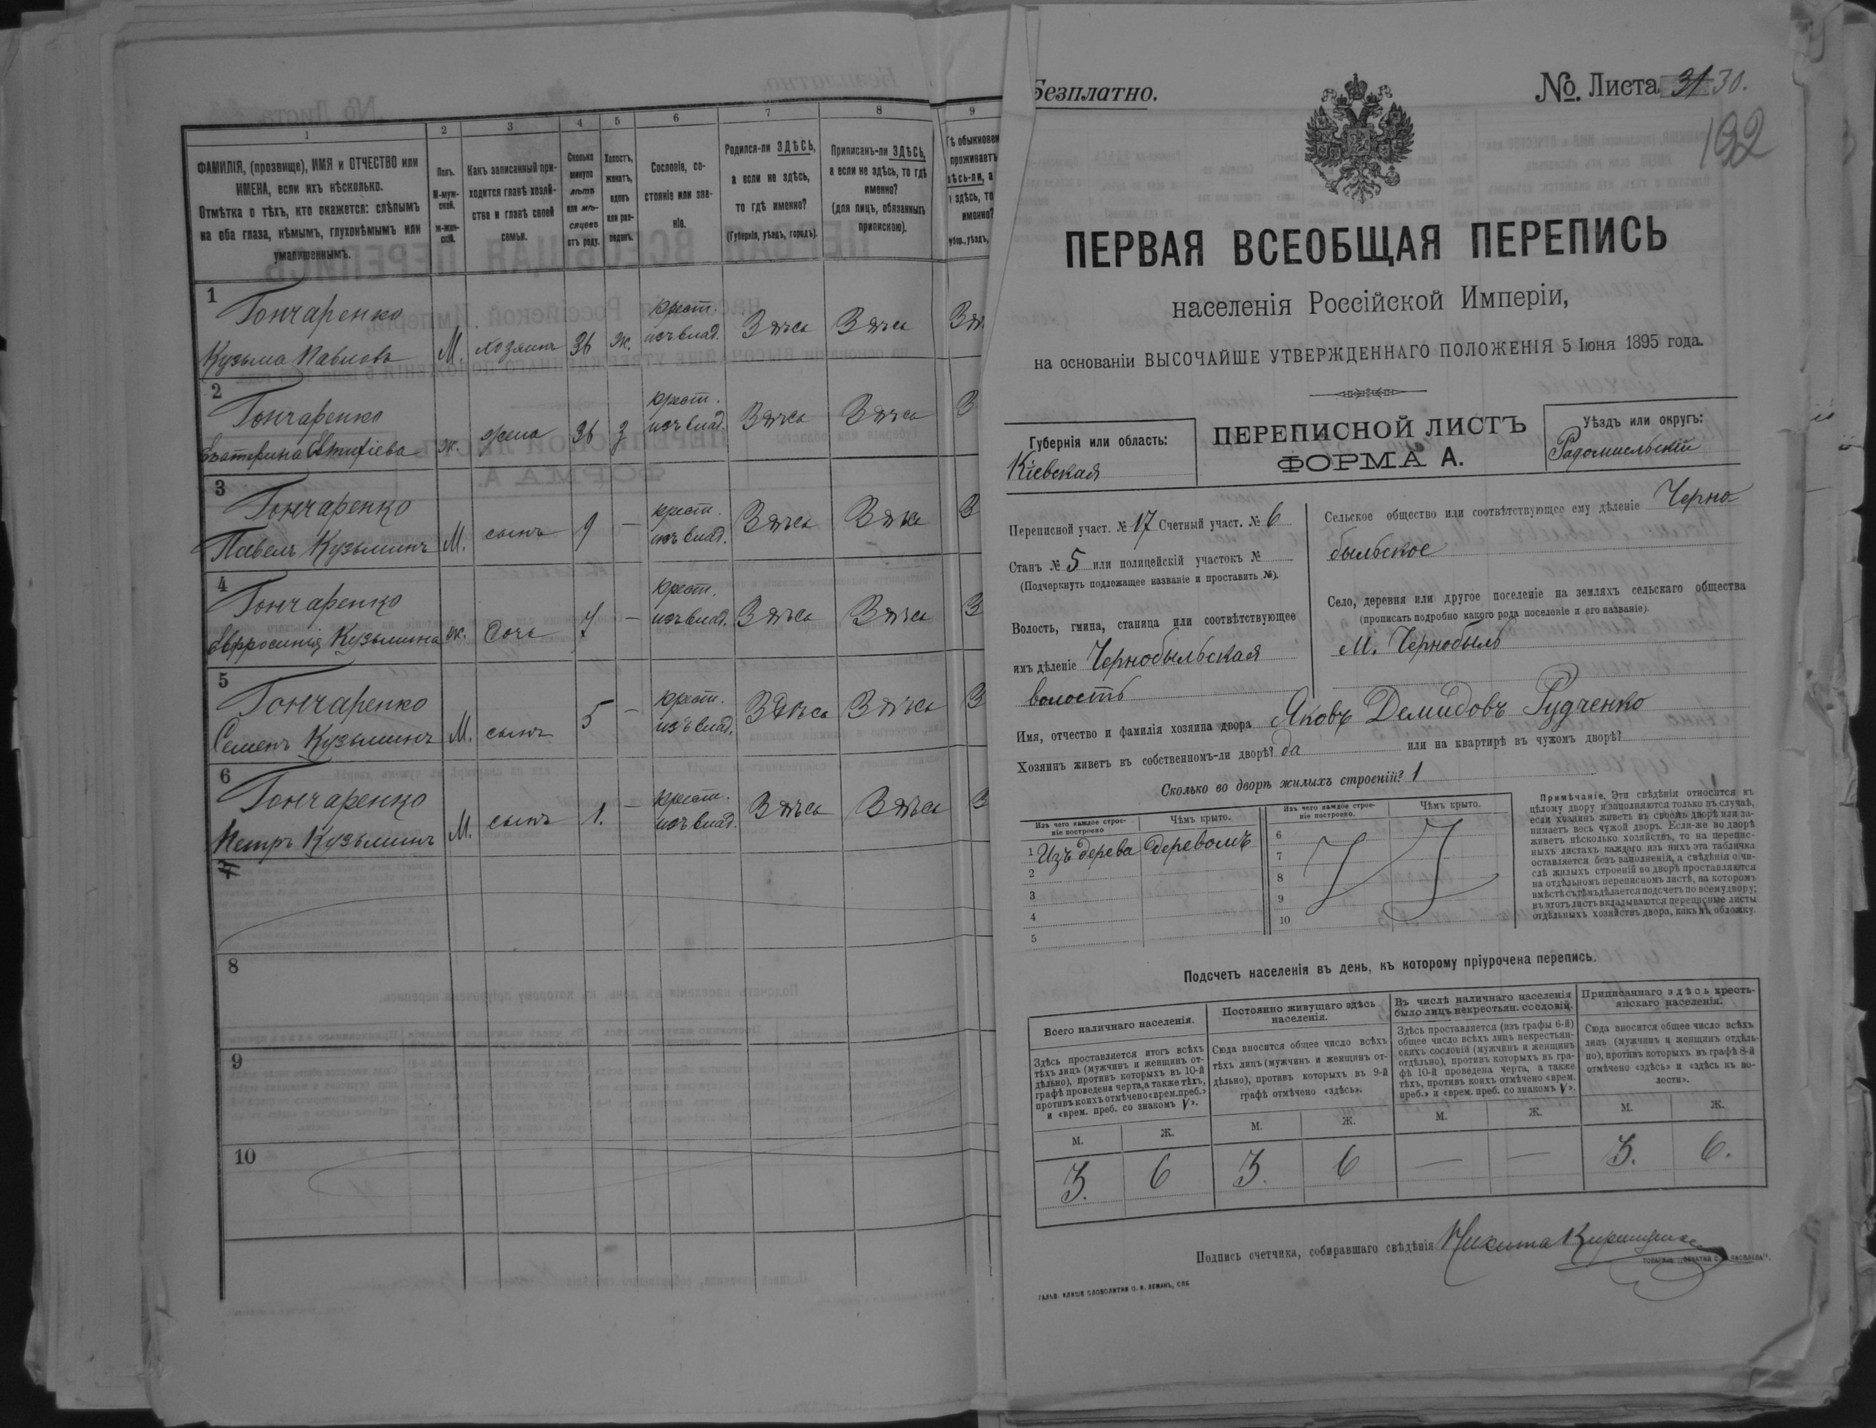 1
2
3
4
5
6
7
8
9
ФАМИЛІЯ, (прозвище), ИМЯ и ОТЧЕСТВО или
ИМЕНА, если ихъ нѣсколько.
Отмѣтка о тѣхъ, кто окажется: слѣпымъ
на оба глаза, нѣмымъ, глухонѣмымъ или
умалишеннымъ.
Полъ.
М-муж-
ской.
ж-жен-
скій.
Какъ записанный при-
ходится главѣ хозяй-
ства и главѣ своей
семьи.
Сколько
минуло
лѣтъ
или мѣ-
сяцевъ
отъ роду.
Холостъ,
женатъ,
вдовъ
или раз-
веденъ.
Сословіе, со-
стояніе или зва-
ніе.
Родился-ли ЗДѢСЬ,
а если не здѣсь,
то гдѣ именно?
(Губернія, уѣздъ, городъ).
Приписанъ-ли ЗДѢСЬ,
а если не здѣсь, то гдѣ
именно?
(для лицъ, обязанныхъ
припискою).
обыкновен
проживаетъ
здѣсь-ли, а
здѣсь, то
именно?
1
Гончаренко
Кузьма Павловъ М. хозяинъ 36 ж. крест. изъ влад. Здѣсь Здѣсь
2
Гончаренко
Екатерина Евтихіева ж. жена 36 з крест. изъ влад. Здѣсь Здѣсь З
3
Гончаренко
Павелъ Кузьминъ М. сынъ 9 – крест. изъ влад. Здѣсь Здѣсь З
4
Гончаренко
Евфросинія Кузьмина ж. дочь 7 – крест. изъ влад. Здѣсь Здѣсь З
5
Гончаренко
Семенъ Кузьминъ М. сынъ 5 – крест. изъ влад. Здѣсь Здѣсь З
6
Гончаренко
Петръ Кузьминъ М. сынъ 1. – крест. изъ влад. Здѣсь Здѣсь З
7
8
9
10
Безплатно.
№ Листа 31 30.
192
ПЕРВАЯ ВСЕОБЩАЯ ПЕРЕПИСЬ
населенія Россійской Имперіи,
на основаніи ВЫСОЧАЙШЕ УТВЕРЖДЕННАГО ПОЛОЖЕНІЯ 5 Іюня 1895 года.
Губернія или область:
Кіевская
ПЕРЕПИСНОЙ ЛИСТЪ
ФОРМА А.
Уѣздъ или округъ:
Радомысльскій
Переписной участ. № 17 Счетный участ. № 6
Станъ № 5 или полицейскій участокъ №
(Подчеркнуть подлежащее названіе и проставить №).
Волость, гмина, станица или соотвѣтствующее
имъ дѣленіе Чернобыльская
волость
Сельское общество или соотвѣтствующее ему дѣленіе Черно-
быльское
Село, деревня или другое поселеніе на земляхъ сельскаго общества
(прописать подробно какого рода поселеніе и его названіе).
М. Чернобыль
Имя, отчество и фамилія хозяина двора Яковъ Демидовъ Рудченко
Хозяинъ живетъ въ собственномъ-ли дворѣ? да или на квартирѣ въ чужомъ дворѣ?
Сколько во дворѣ жилыхъ строеній? 1
Изъ чего каждое строе-
ніе построено
Чѣмъ крыто.
Изъ чего каждое строе-
ніе построено.
Чѣмъ крыто.
1 Изъ дерева деревомъ
2
3
4
5
6
7
8
9
10
Примѣчаніе. Эти свѣдѣнія относятся къ
цѣлому двору и заполняются только въ случаѣ,
если хозяинъ живетъ въ своемъ дворѣ или за-
нимаетъ весь чужой дворъ. Если-же во дворѣ
живетъ нѣсколько хозяйствъ, то на перепис-
ныхъ листахъ каждаго изъ нихъ эта табличка
оставляется безъ заполненія, а свѣдѣнія о чи-
слѣ жилыхъ строеній во дворѣ проставляются
на отдѣльномъ переписномъ листѣ, на которомъ
вмѣстѣ съ тѣмъ дѣлается подсчетъ по всему двору;
въ этотъ листъ вкладываются переписные листы
отдѣльныхъ хозяйствъ двора, какъ въ обложку.
Подсчетъ населенія въ день, къ которому пріурочена перепись.
Всего наличнаго населенія.
Здѣсь проставляется итогъ всѣхъ
тѣхъ лицъ (мужчинъ и женщинъ от-
дѣльно), противъ которыхъ въ 10-й
графѣ проведена черта, а также тѣхъ,
противъ коихъ отмѣчено «врем. преб.»
и «врем. преб. со знакомъ V».
Постоянно живущаго здѣсь
населенія.
Сюда вносится общее число всѣхъ
тѣхъ лицъ (мужчинъ и женщинъ от-
дѣльно), противъ которыхъ въ 9-й
графѣ отмѣчено «здѣсь».
Въ числѣ наличнаго населенія
было лицъ некрестьян. сословій.
Здѣсь проставляется (изъ графы 6-й)
общее число всѣхъ лицъ некрестьян-
скихъ сословій (мужчинъ и женщинъ
отдѣльно), противъ которыхъ въ гра-
фѣ 10-й проведена черта, а также
тѣхъ, противъ коихъ отмѣчено «врем.
преб.» и «врем. преб. со знакомъ V».
Приписаннаго здѣсь кресть-
янскаго населенія.
Сюда вносится общее число всѣхъ
лицъ (мужчинъ и женщинъ отдѣль-
но), противъ которыхъ въ графѣ 8-й
отмѣчено «здѣсь» и «здѣсь къ во-
лости».
М. Ж. М. Ж. М. Ж. М. Ж.
3. 6 3. 6 — — 3. 6.
Подпись счетчика, собиравшаго свѣдѣнія Никита
ГАЛЬВ. КЛИШЕ СЛОВОЛИТНИ О. И. ЛЕМАНЪ, СПБ